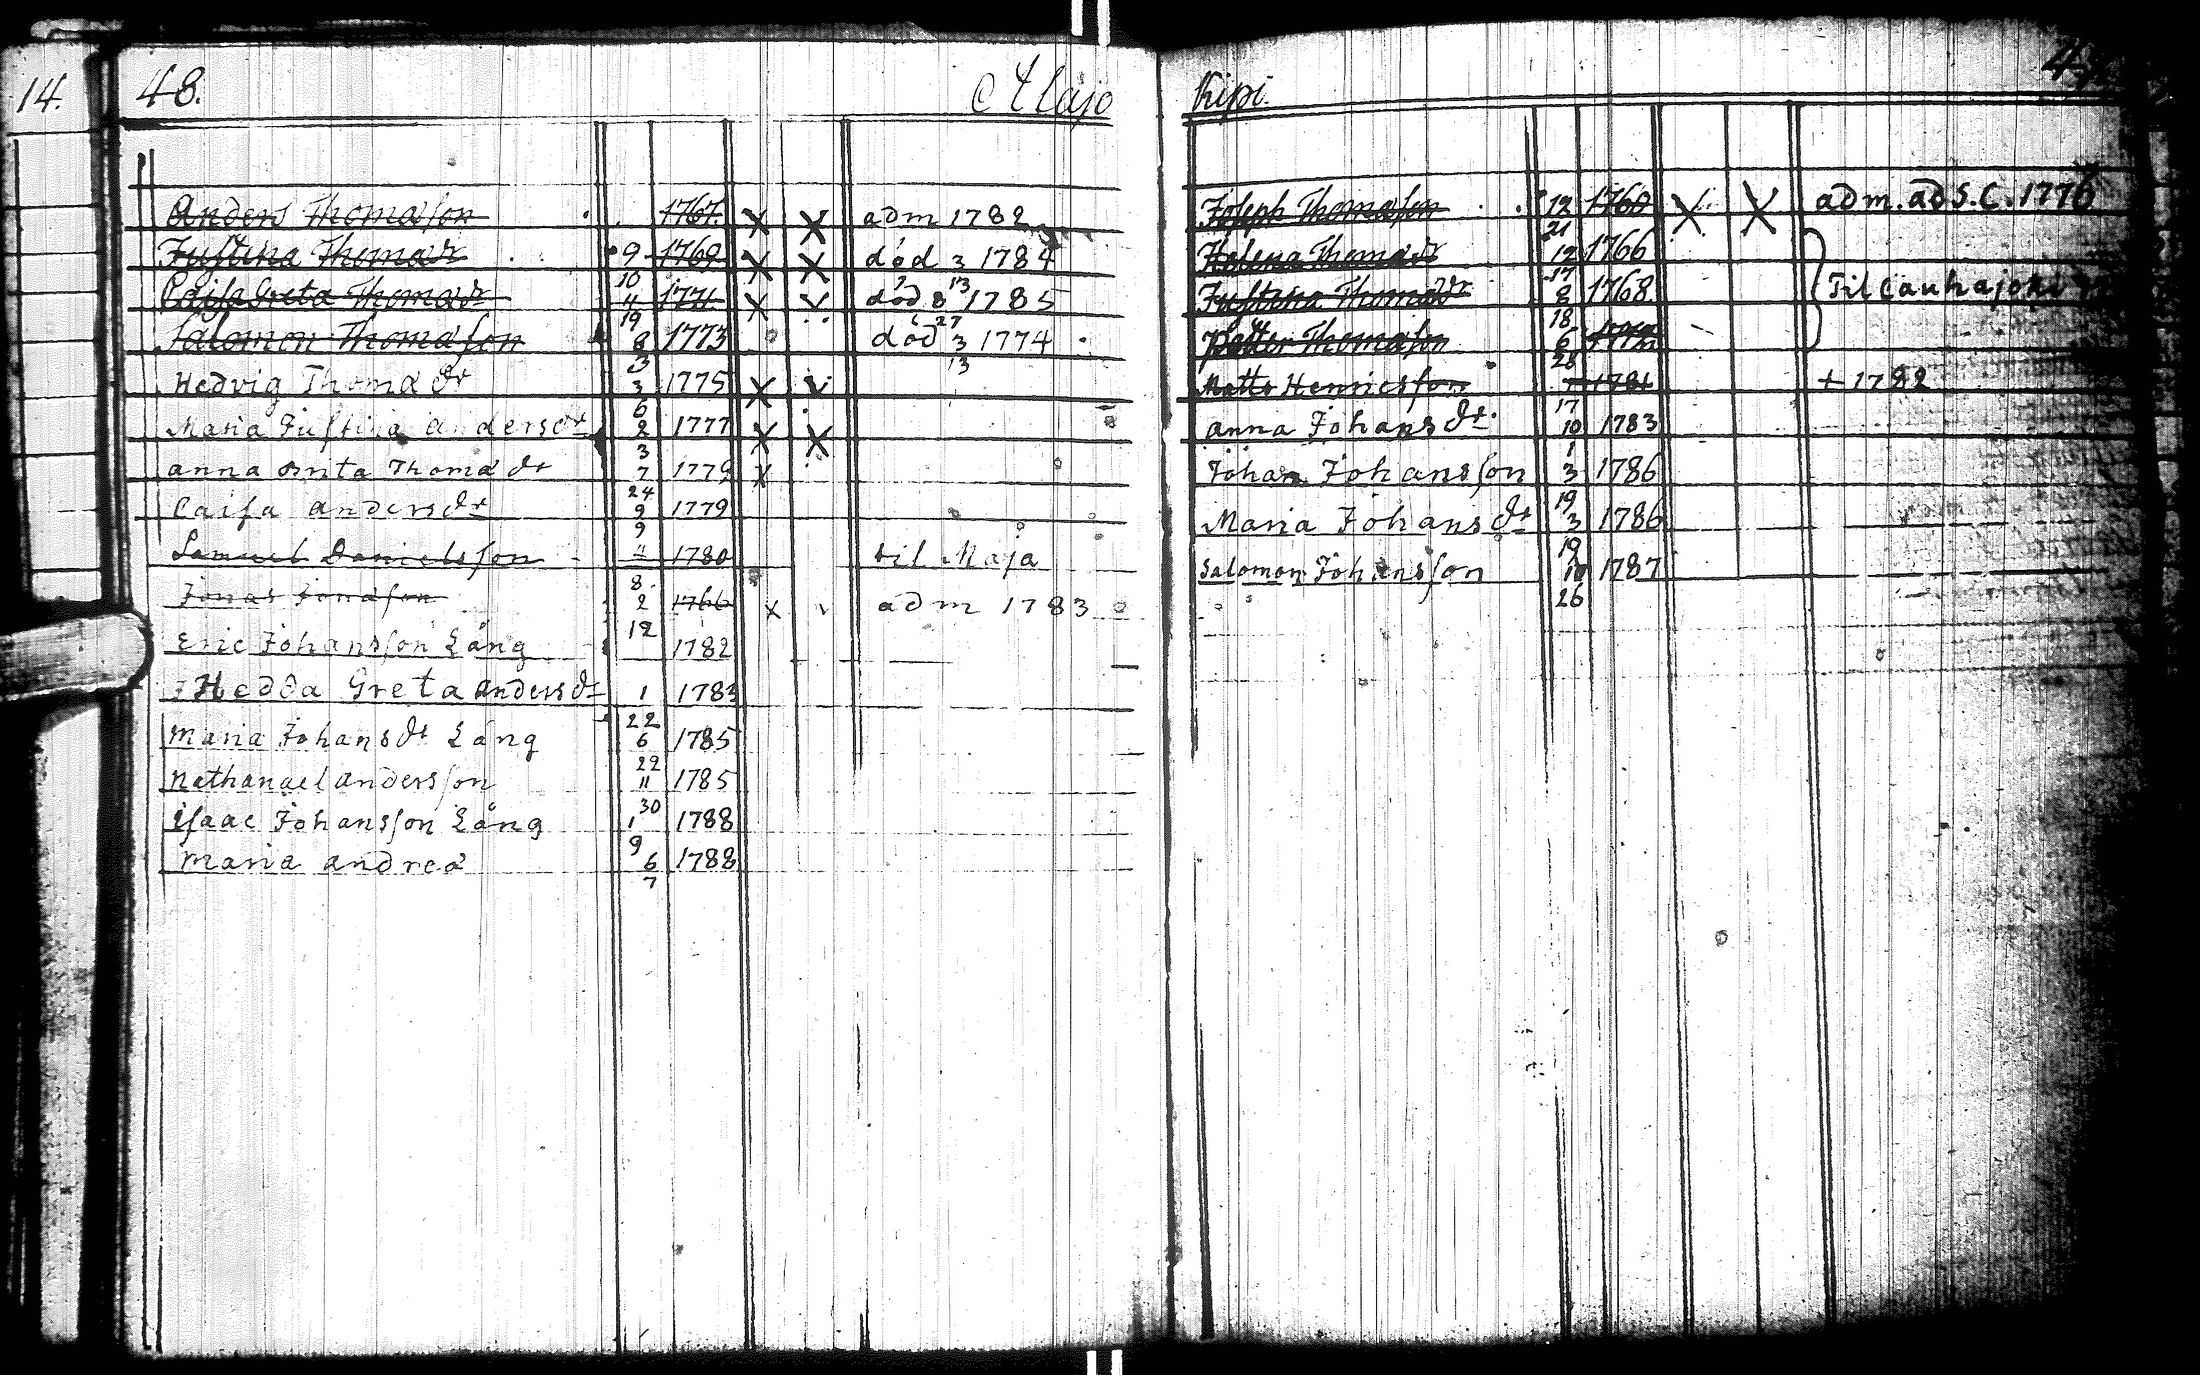 14.
48.
Alajo
Anders Thomasson 1767. X X adm 1782
Justina Thomadr 9 1769 X X död 3 1784
10 13
Caisa Greta Thomadr 4 1771 X död 8 1785
19 27
Salomon Thomasson 8 1773 död 3 1774
3 13
Hedvig Thomadr 3 1775 X
6
Maria Justina andersdr 2 1777 X X
3
anna Brita Thomadr 7 1779 X
24
Caisa andersdr 9 1779
9
Samuel Danielsson 11 1780 til Maja
8.
Jonas Jonasson 2 1766 X adm 1783
12
Eric Johansson Lång 1782
Hedda Greta Andersdr 1 1783
22
Maria Johansdr Lång 6 1785
22
Nathanael andersson 11 1785
30
Isaac Johansson Lång 1 1788
9
Maria andreæ 6 1788
7
Kipi.
Joseph Thomasson 12 1760 X X adm. ad S. C. 1776
21
Helena Thomadr 12 1766
17
Justina Thomadr 8 1768 Til Cauhajoki
18
Petter Thomasson 6
26
Matts Henricsson 1781 + 1782
17
anna Johansdr. 10 1783
1
Johan Johansson 3 1786
19
Maria Johansdr 3 1786
19
Salomon Johansson 10 1787
26